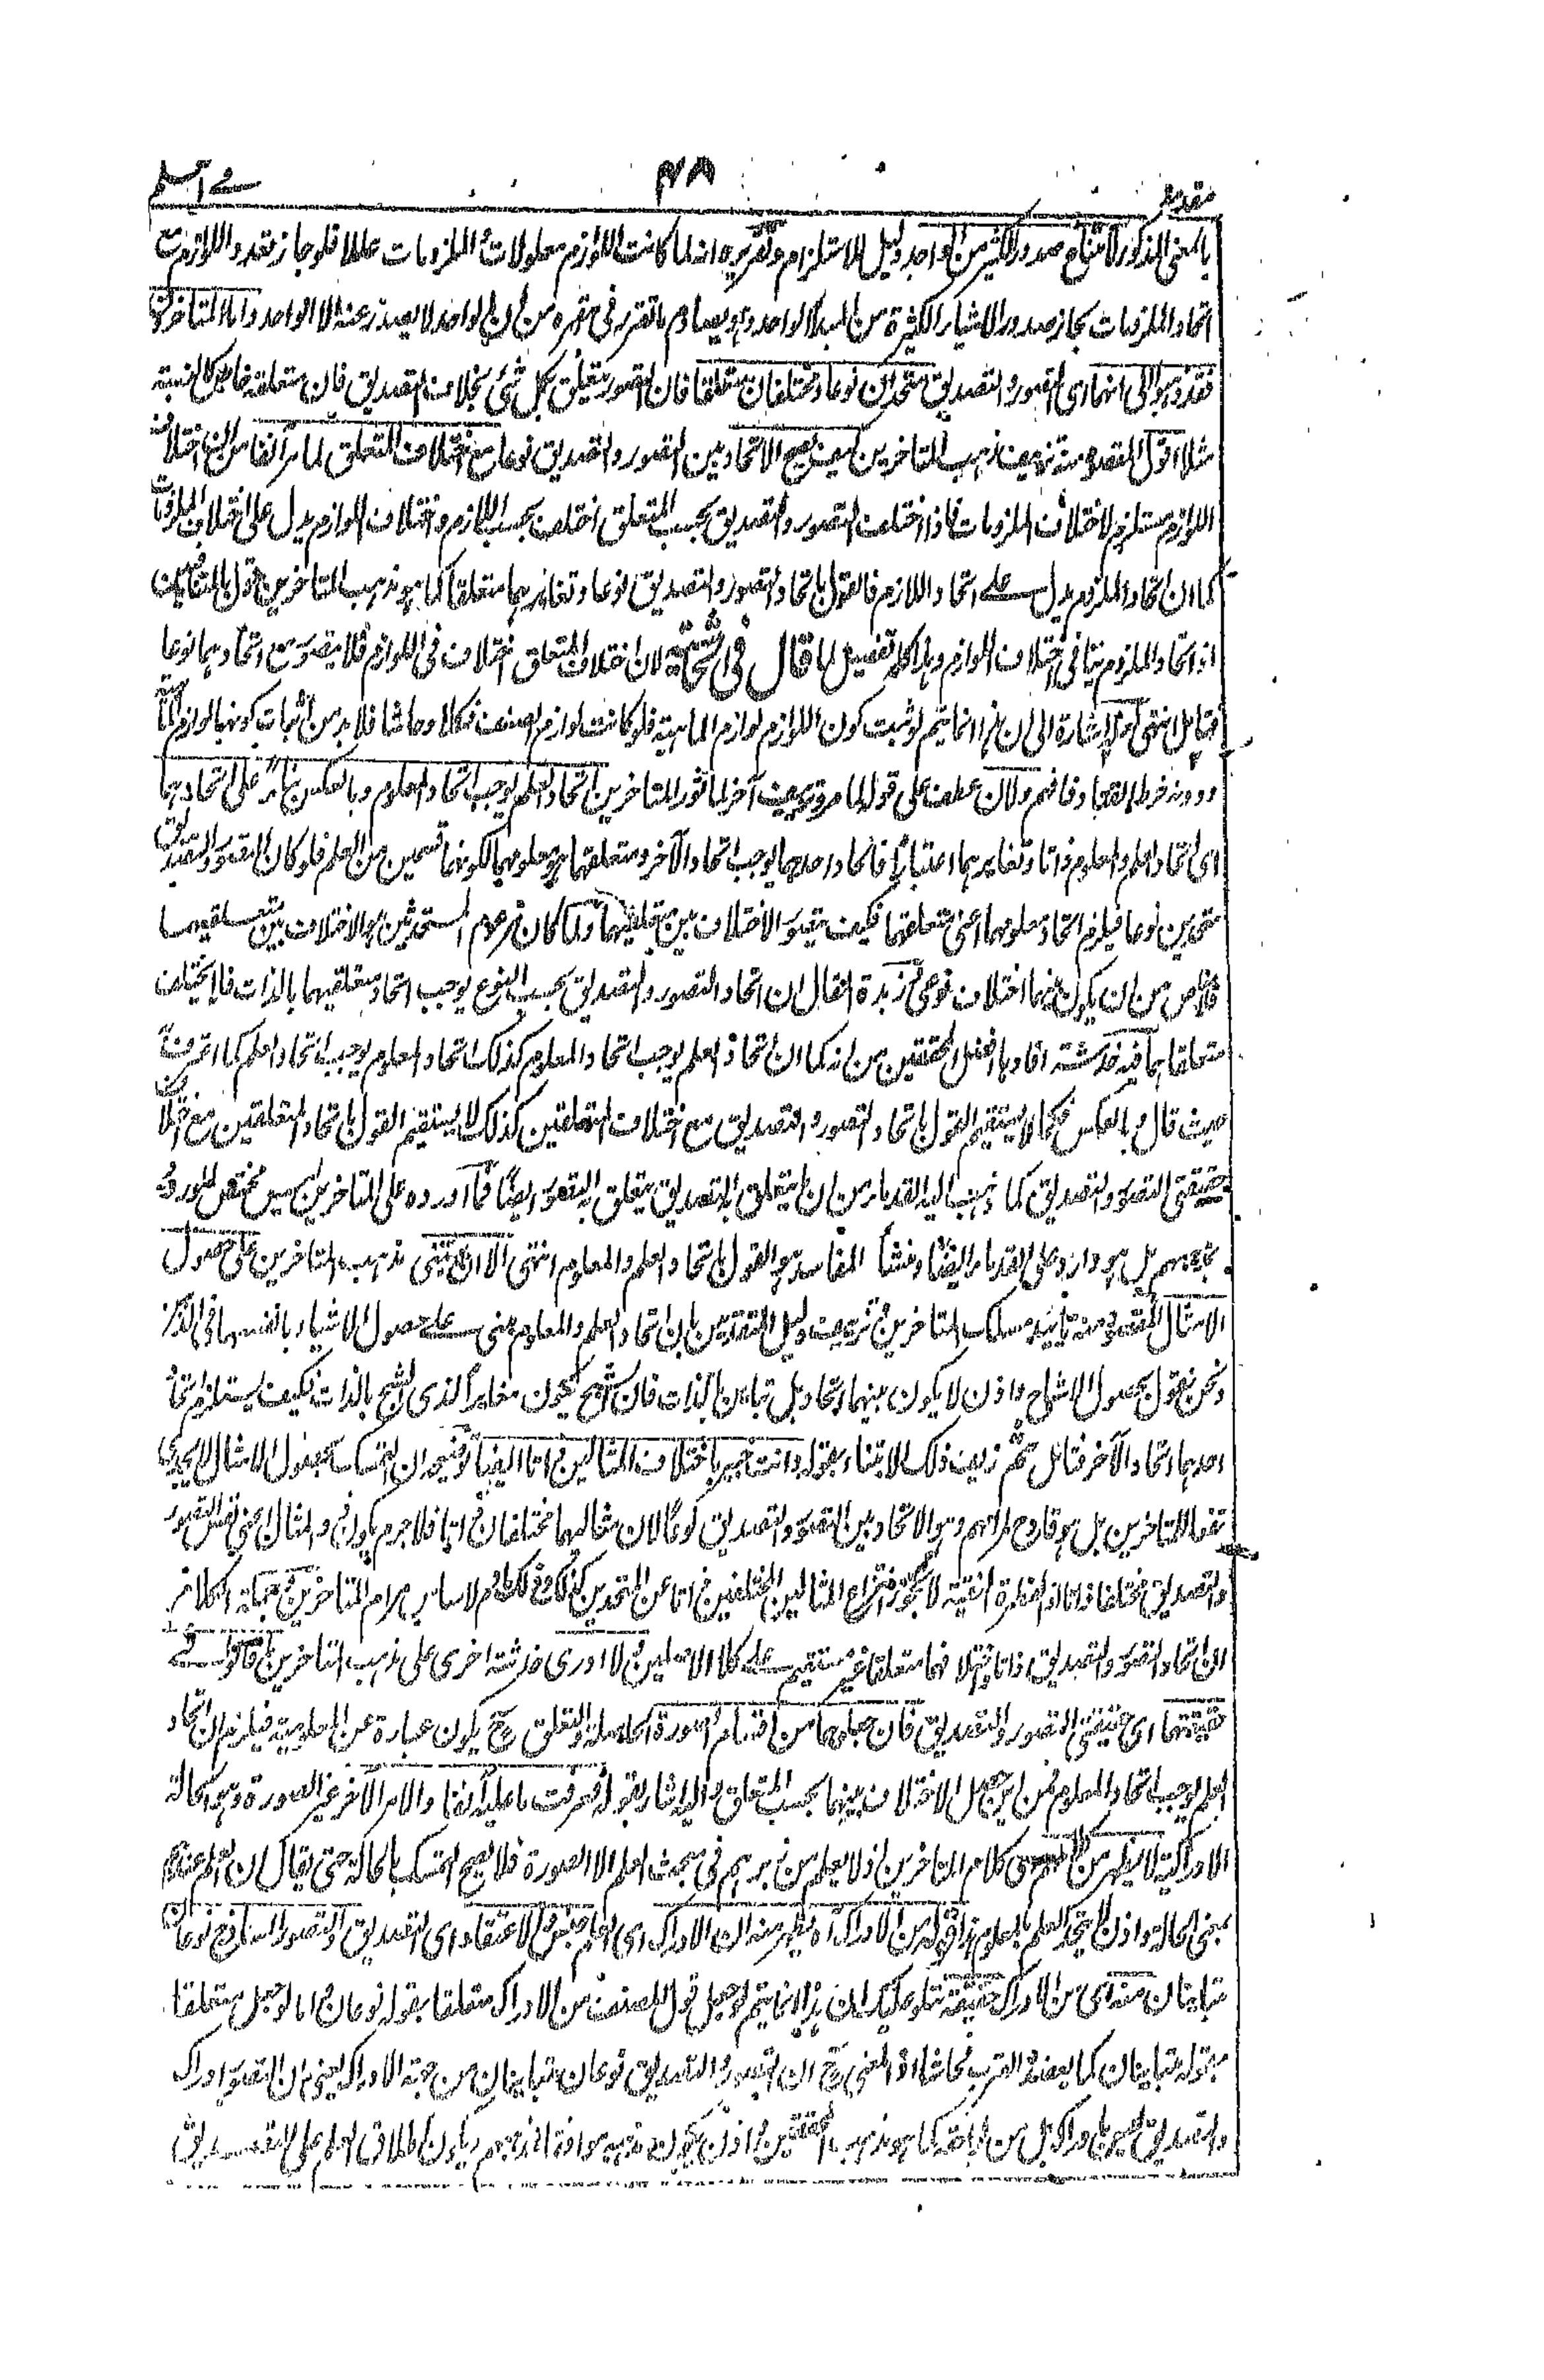 مقدمه ٤٨ في العلم
بالمعنى المذكور لامتناع صدور الكثير من الواحد دليل الاستلزام وتقريره انه لما كانت اللوازم معلولات والملزومات عللا فلو جاز تعدد اللوازم مع
اتحاد الملزومات لجاز صدور الاشياء الكثيرة من المبدأ الواحد وهو يصادم ما تقرر في مقره من ان الواحد لا يصدر عنه الا الواحد واما المتاخرون
فقد ذهبوا الى انهما اى التصور والتصديق متحدان نوعا ومختلفان متعلقا فان التصور يتعلق بكل شئ بخلاف التصديق فان متعلقه خاص كالنسبة
مثلا اقول المقصود منه تزييف مذهب المتاخرين ليس يصح الاتحاد بين التصور والتصديق نوعا مع اختلاف المتعلق لما مر آنفا من ان اختلاف
اللوازم مستلزم لاختلاف الملزومات فاذا اختلف التصور والتصديق بحسب المتعلق اختلف بحسب اللازم واختلاف اللوازم يدل على اختلاف الملزومات
كما ان اتحاد الملزوم يدل على اتحاد اللازم فالقول باتحاد التصور والتصديق نوعا وتغايرهما متعلقا كما هو مذهب المتاخرين قول بالمتنافيين
اذ اتحاد الملزوم ينافي اختلاف اللوازم وهذا كله تفصيل لما قال في الحاشية لان اختلاف المتعلق اختلاف في اللوازم فلا يتصور مع اتحادهما نوعا
فتامل انتهى اشارة الى ان هذا انما يتم لو ثبت كون اللوازم لوازم الماهية فلو كانت لوازم الصنف فكلا وحاشا فلا بد من اثبات كونها لوازم الماهية
ودونه خرط القتاد فافهم ولان عطف على قوله لما مر تزييف آخر لما ثور المتاخرين اتحاد العلم يوجب اتحاد المعلوم وبالعكس بناء على اتحادهما
اى اتحاد العلم والمعلوم ذاتا وتغايرهما اعتبارا فاتحاد احدهما يوجب اتحاد الآخر ومتعلقهما هو معلومهما لكونهما قسمين من العلم فلو كان التصور والتصديق
متحدين نوعا فيلزم اتحاد معلومهما اعنى متعلقهما فكيف يتصور الاختلاف بين متعلقيهما ولما كان مزعوم المستحدثين هو الاختلاف بين متعلقيهما
فلا مناص من ان يكون بينهما اختلاف نوعى زبدة المقال ان اتحاد التصور والتصديق بحسب النوع يوجب اتحاد متعلقيهما بالذات فلا يختلف
متعلقاهما فيه خدشة افادها افضل المحققين من انه كما ان اتحاد العلم يوجب اتحاد المعلوم كذلك اتحاد المعلوم يوجب اتحاد العلم كما اعترف
حيث قال وبالعكس فكما لا يستقيم القول باتحاد التصور والتصديق مع اختلاف المتعلقين كذلك لا يستقيم القول باتحاد المتعلقين مع اختلاف
حقيقتى التصور والتصديق كما ذهب اليه القدماء من ان ما يتعلق به التصديق يتعلق به التصور ايضا فما اورده على المتاخرين ليس مختص الورود
بل هو وارد على القدماء ايضا ومنشأ المفاسد هو القول باتحاد العلم والمعلوم انتهى الا ان يبتنى مذهب المتاخرين على حصول
الامثال المقصود منه تائيد مسلك المتاخرين وتزييف دليل المتقدمين بان اتحاد العلم والمعلوم مبنى على حصول الاشياء بانفسها في الذهن
ونحن نقول بحصول الاشباح واذن لا يكون بينهما اتحاد بل تباين بالذات فان الشبح يكون مغايرا لذى الشبح بالذات فكيف يستلزم اتحاد
احدهما اتحاد الآخر فتامل ثم زيف ذلك الابتناء بقوله وانت خبير باختلاف المثالين ذاتا ايضا توضيحه ان التمسك بحصول الامثال لا يجدى
نفعا للمتاخرين بل هو قادح لمرامهم وهو الاتحاد بين التصور والتصديق نوعا لان مثاليهما مختلفان ذاتا فلا جرم يكون ذو المثال اعنى نفس التصور
والتصديق مختلفا ذاتا اذ الفطرة النقية لا تجوز انتزاع المثالين المختلفين ذاتا عن المتحدين لا اساس لمرام المتاخرين وجملة الكلام
ان اتحاد التصور والتصديق ذاتا واختلافهما متعلقا غير مستقيم على كلا الاصلين ولا ادرى خدشة اخرى على مذهب المتاخرين ما قالوا في
حقيقتهما اى حقيقتى التصور والتصديق فان جعلهما من اقسام الصورة الحاصلة والتعلق ح يكون عبارة عن المعلومية فيلزم ان اتحاد
العلم يوجب اتحاد المعلوم فمن اين يجعل الاختلاف بينهما بحسب المتعلق واليه اشار بقوله فعرفت ما عليه آنفا والامر الآخر غير الصورة وهو الحالة
الادراكية لا يظهر من كلامهم اى كلام المتاخرين اذ لا يعلم من زبرهم في مبحث العلم الا الصورة فلا يصح التمسك بالحالة حتى يقال ان العلم عندهم
بمعنى الحالة واذن لا يتحد العلم بالمعلوم قوله من الادراك اه يظهر منه ان الادراك اى العلم جنس والاعتقاد اى التصديق والتصور الساذج نوعان
متباينان منه اى من الادراك حقيقة ان هذا انما يتم لو جعل قول المصنف من الادراك متعلقا بقوله نوعان واما لو جعل متعلقا
بقوله متباينان كما يعضده القرب فحاشا اذ المعنى ح ان التصور والتصديق نوعان متباينان من جهة الادراك يعنى ان التصور ادراك
والتصديق ليس بادراك بل من لواحقه كما هو مذهب المحققين واذن يكون اطلاق العلم على التصديق